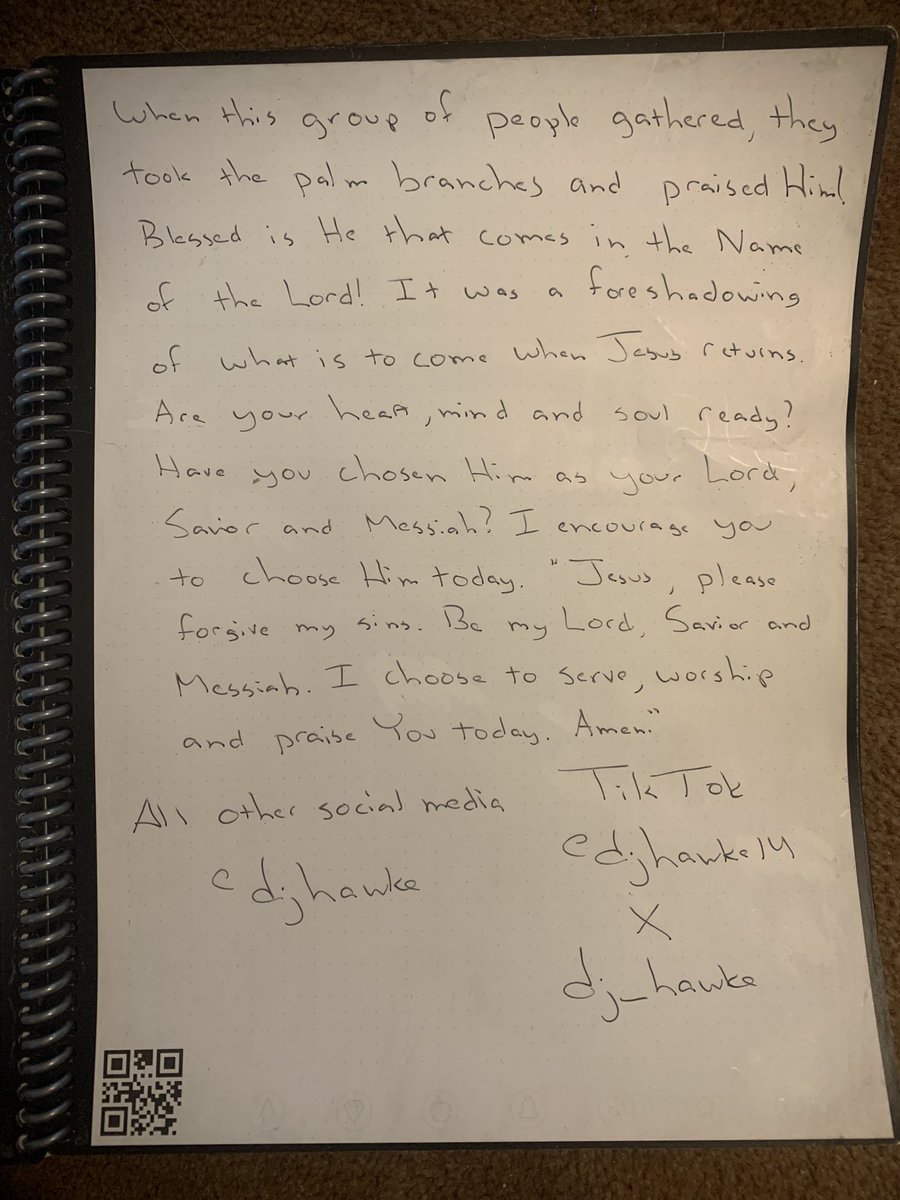 When this group of people gathered, they
took the palm branches and praised Him!
Blessed is He that comes in the Name
of the Lord! It was a foreshadowing
of what is to come when Jesus returns.
Are your heart, mind and soul ready?
Have you chosen Him as your Lord,
Savior and Messiah? I encourage you
to choose Him today. "Jesus, please
forgive my sins. Be my Lord, Savior and
Messiah. I choose to serve, worship
and praise You today. Amen."
All other social media
@djhawke
TikTok
@djhawke14
X
dj_hawke